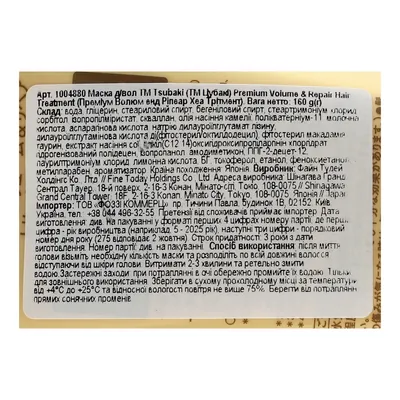 Арт. 1004880 Маска д/вол ТМ Tsubaki (ТМ Цубакі) Premium Volume & Repair Hair
Treatment (Преміум Волюм енд Ріпеар Хеа Трітмент). Вага нетто: 160 g(г)
Склад: вода, гліцерин, стеариловий спирт, бегеніловий спирт, стеартримоніум хлорид
сорбітол, ізопропілміристат, сквалан, олія насіння камелії, полікватерніум-11, молочна
кислота, аспарагінова кислота, натрію дилауроїлглутамат лізину,
дилауроїлглутамінова кислота ді(фітостерил/октилдодецил), фітостерил макадамія
таурин, екстракт насіння сої, цікіл(C12 14)оксигідроксипропіларгінін хлоргідрат
гідрогенізований поліізобутен, ізопропанол, амодиметикон, ППГ-2-децет-12,
лаурилтримоніум хлорид, лимонна кислота, БГ, токоферол, етанол, феноксиетанол
метилпарабен, ароматизатор. Країна походження: Японія. Виробник: Файн Тудей
Холдінгс Ко., Лтд. // Fine Today Holdings Co., Ltd. Адреса виробника: Шінагава Гранд
Сентрал Тауер, 18-й поверх, 2-16-3 Конан, Мінато-сіті, Токіо, 108-0075 // Shinagawa
Grand Central Tower 18F, 2-16-3 Konan, Minato-ku, Tokyo 108-0075, Японія // Japan
Імпортер: ТОВ «ФОЗЗІ КОММЕРЦ», м. Вишневе, вул. Тичини Павла, будинок 1В, 02152, Київ
Україна, тел. +38 044 496-32-55. Претензії від споживачів приймає імпортер. Дата
виготовлення: див. на пакуванні: перші 4 цифри у форматі номеру партії, де перша
цифра - рік виробництва (наприклад, 5 - 2025 рік), наступні три цифри - порядковий
номер дня року (275 відповідає 2 жовтня). Строк придатності: 3 роки з дати
виготовлення. Номер партії: див. на пакуванні. Спосіб використання: після миття
голови візьміть необхідну кількість маски та розподіліть по всій довжині волосся
відступаючи від шкіри голови. Витримати 2-3 хвилини та ретельно змити
водою. Застережні заходи: при потраплянні в очі обережно промийте їх водою. Тільки
для зовнішнього використання. Зберігати в сухому прохолодному місці за температури
від +4°C до +25°C та відносної вологості повітря не вище 75%. Берегти від потрапляння
прямих сонячних променів.